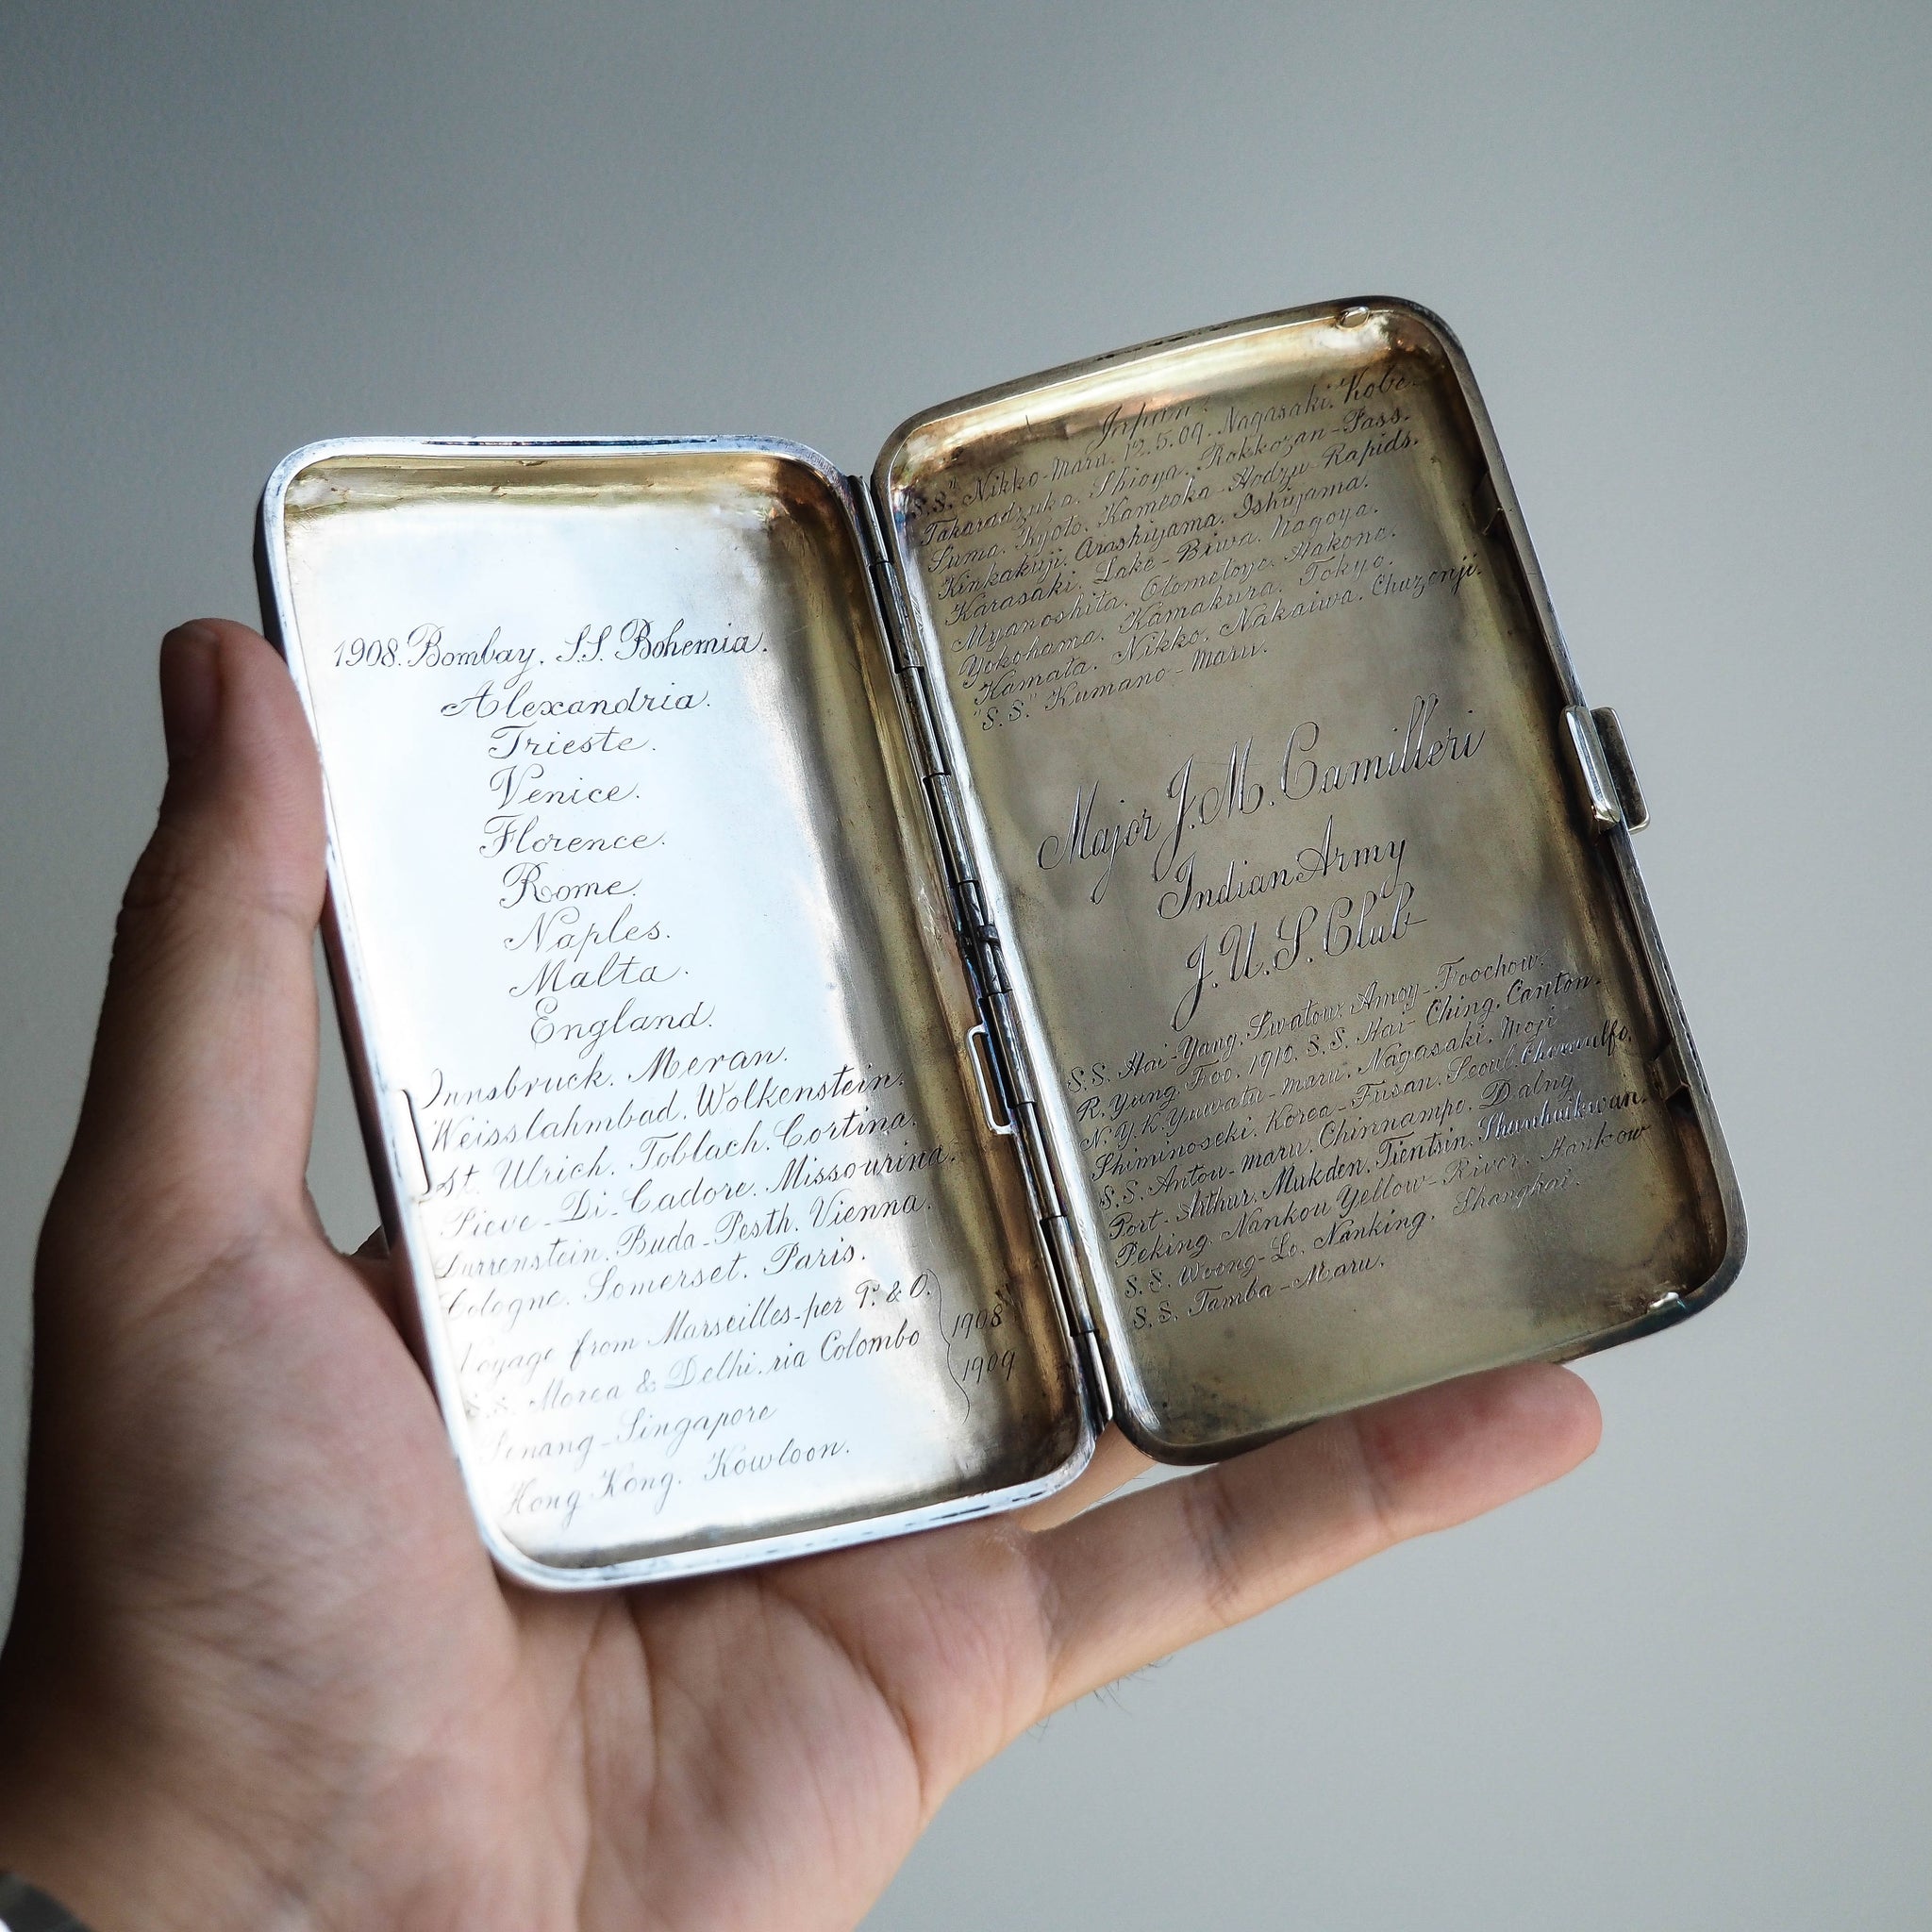 1908. Bombay. S.S. Bohemia.
Alexandria.
Trieste.
Venice.
Florence.
Rome.
Naples.
Malta.
England.
Innsbruck. Meran.
Weisslahmbad. Wolkenstein.
St. Ulrich. Toblach. Cortina.
Pieve-Di-Cadore. Missourina.
Durrenstein. Buda-Pesth. Vienna.
Cologne. Somerset. Paris.
Voyage from Marseilles-per P. & O. 1908
S.S. Morea & Delhi. via Colombo 1909
Penang-Singapore
Hong Kong. Kowloon.
Japan.
"S.S." Nikko-Maru. 12.5.09. Nagasaki. Kobe.
Takaradzuka. Shioya. Rokkozan-Pass.
Suma. Kyoto. Kameoka-Hodzu-Rapids.
Kinkakuji. Arashiyama. Ishiyama.
Karasaki. Lake-Biwa. Nagoya.
Myanoshita. Hakone.
Yokohama. Kamakura. Tokyo.
Kamata. Nikko. Nakaiwa. Chuzenji.
"S.S." Kumano-Maru.
Major J.M. Camilleri
Indian Army
J.U.S. Club
S.S. Hai-Yang. Swatow. Amoy-Foochow.
R. Yung. Foo. 1910. S.S. Hai-Ching. Canton.
N.Y.K. maru. Nagasaki. Moji
Shiminoseki. Korea-Fusan. Seoul. Chemulfo.
S.S. Antou-maru. Chinnampo. Dalny
Port-Arthur. Mukden. Tientsin. Shanhaikwan.
Peking. Nankou Yellow-River. Hankow
S.S. Nanking. Shanghai.
S.S. Tamba-Maru.